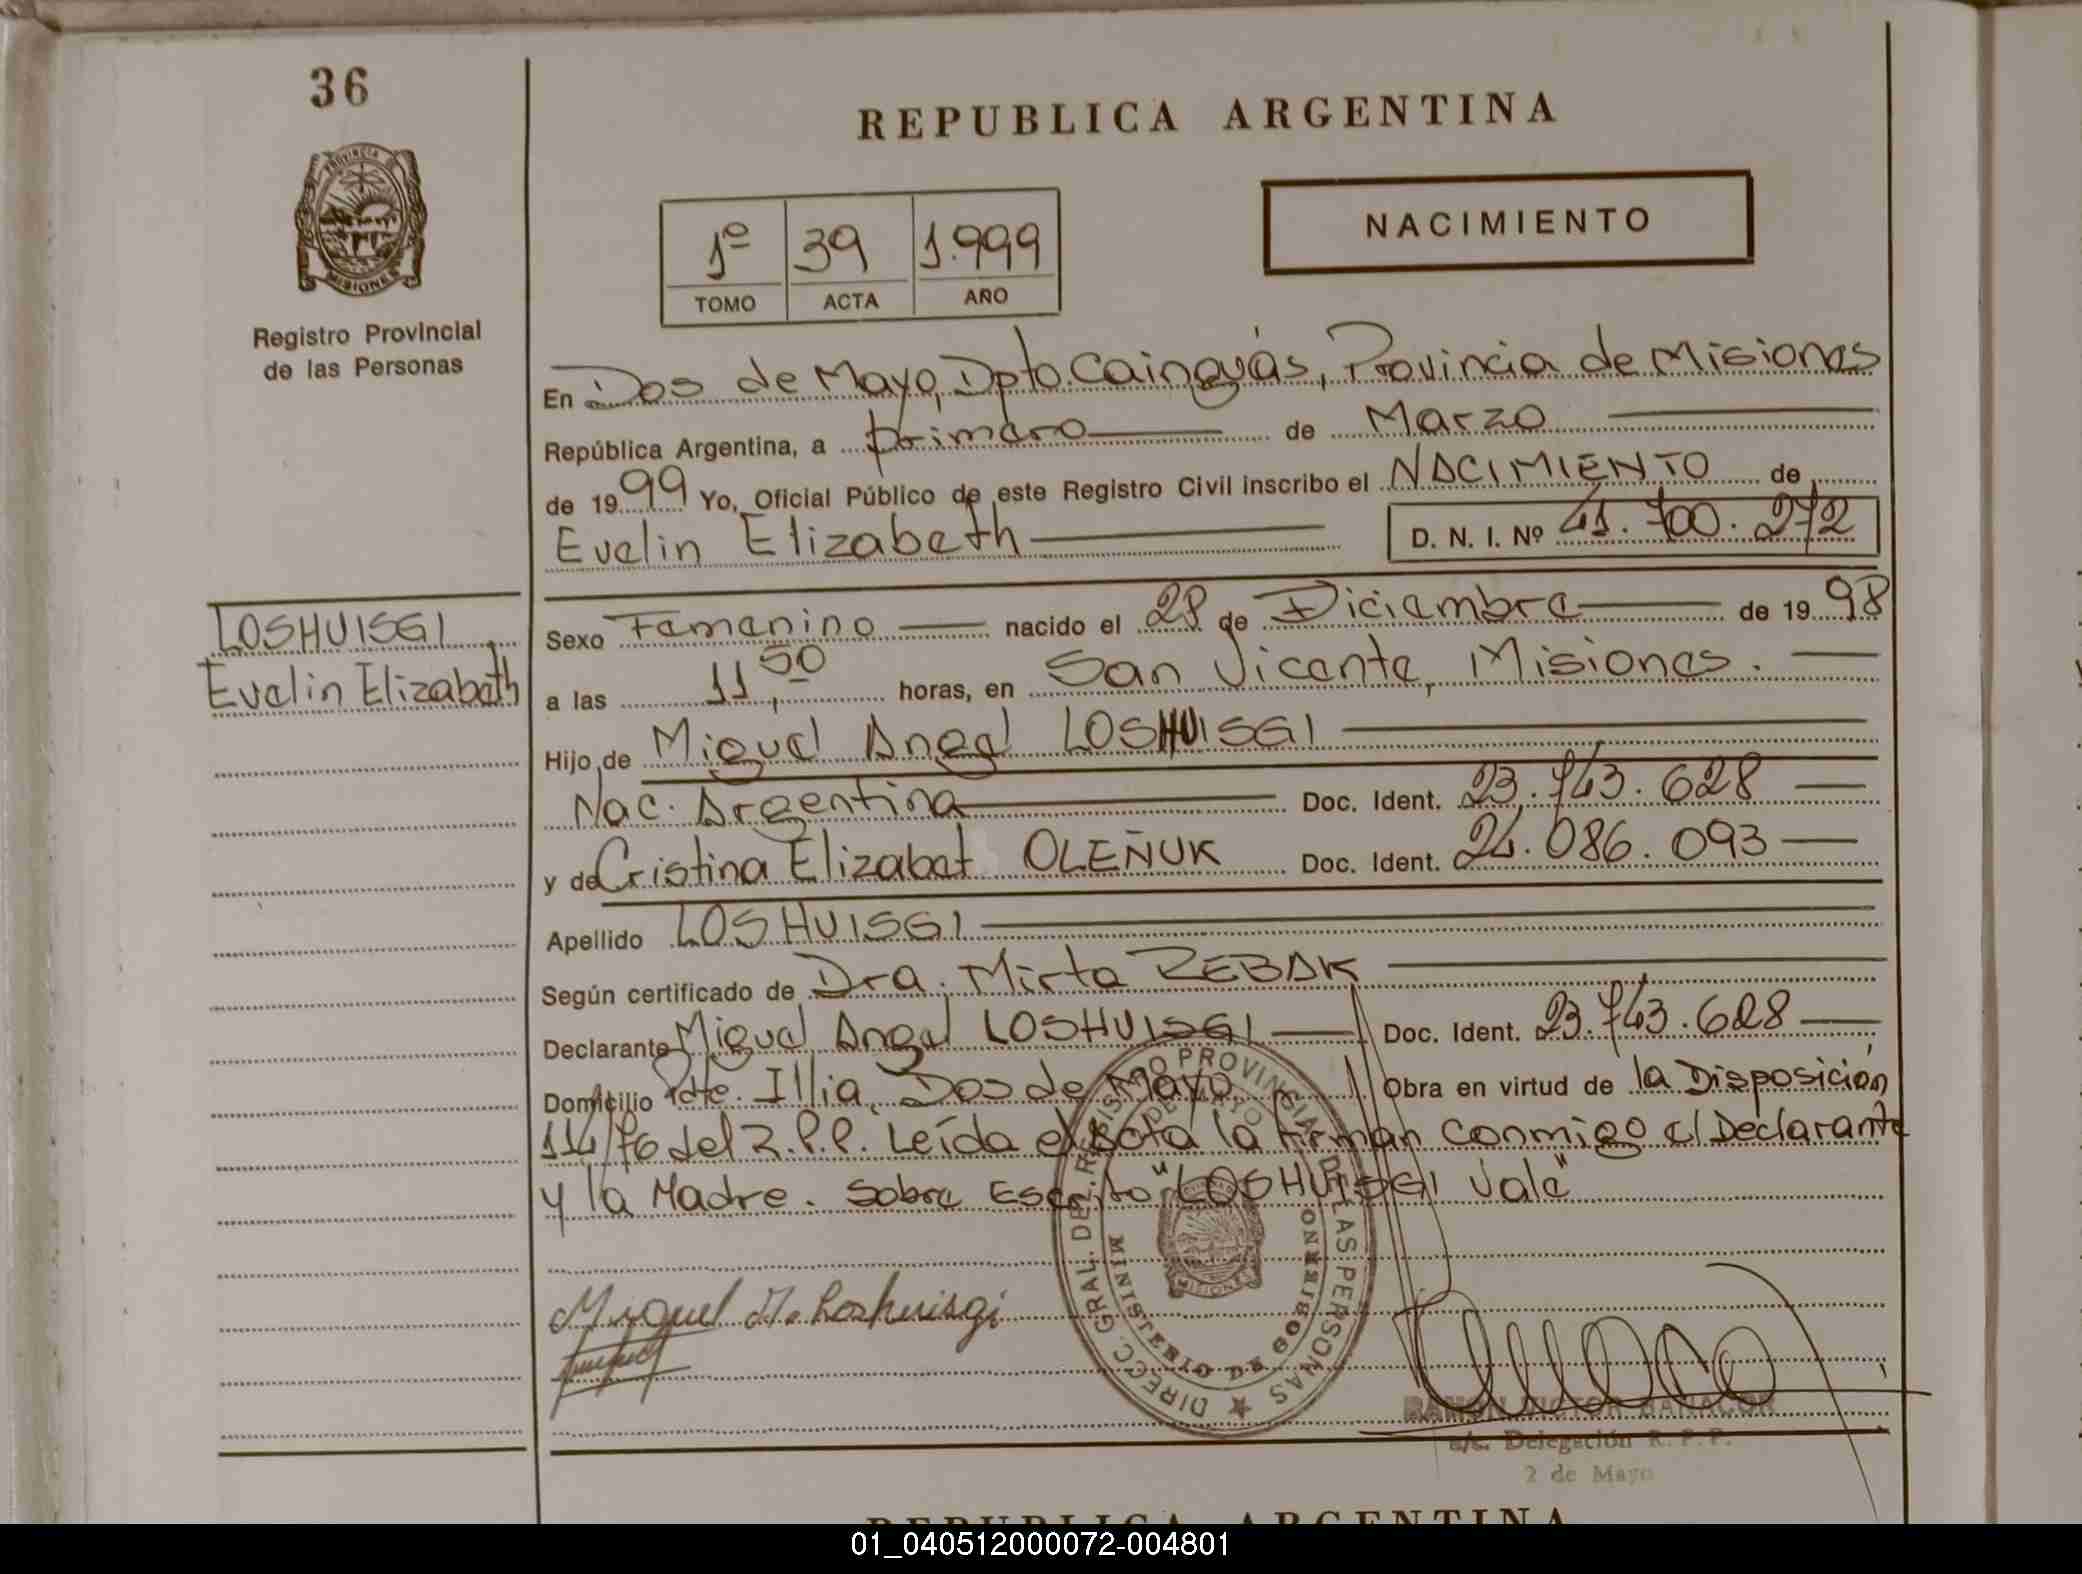 36
REPUBLICA ARGENTINA
PROVINCIA DE
MISIONES
Registro Provincial
de las Personas
1º 39 1.999
TOMO ACTA AÑO
NACIMIENTO
En Dos de Mayo, Dpto. Cainguás, Provincia de Misiones
República Argentina, a primero de Marzo
de 1999 Yo, Oficial Público de este Registro Civil inscribo el NACIMIENTO de
Evelin Elizabeth D. N. I. Nº 41.700.272
LOSHUISGI
Evelin Elizabeth
Sexo Femenino nacido el 28 de Diciembre de 1998
a las 11,50 horas, en San Vicente, Misiones.
Hijo de Miguel Angel LOSHUISGI
Nac. Argentina Doc. Ident. 23.743.628
y de Cristina Elizabet OLEÑUK Doc. Ident. 24.086.093
Apellido LOSHUISGI
Según certificado de Dra. Mirta REBAK
Declarante Miguel Angel LOSHUISGI Doc. Ident. 23.743.628
Domicilio Pdte. Illia, Dos de Mayo. Obra en virtud de la Disposición
114/76 del R.P.P. Leída el Acta la firman conmigo el Declarante
y la Madre. Sobre Escrito "LOSHUISGI Vale"
DIRECC. GRAL. DEL REGISTRO PROVINCIAL DE LAS PERSONAS
MINISTERIO DE GOBIERNO
2 DE MAYO
MISIONES
Miguel A. Loshuisgi
RAMON VICTOR
a/c. Delegación R. P. P.
2 de Mayo
REPUBLICA ARGENTINA
01_040512000072-004801